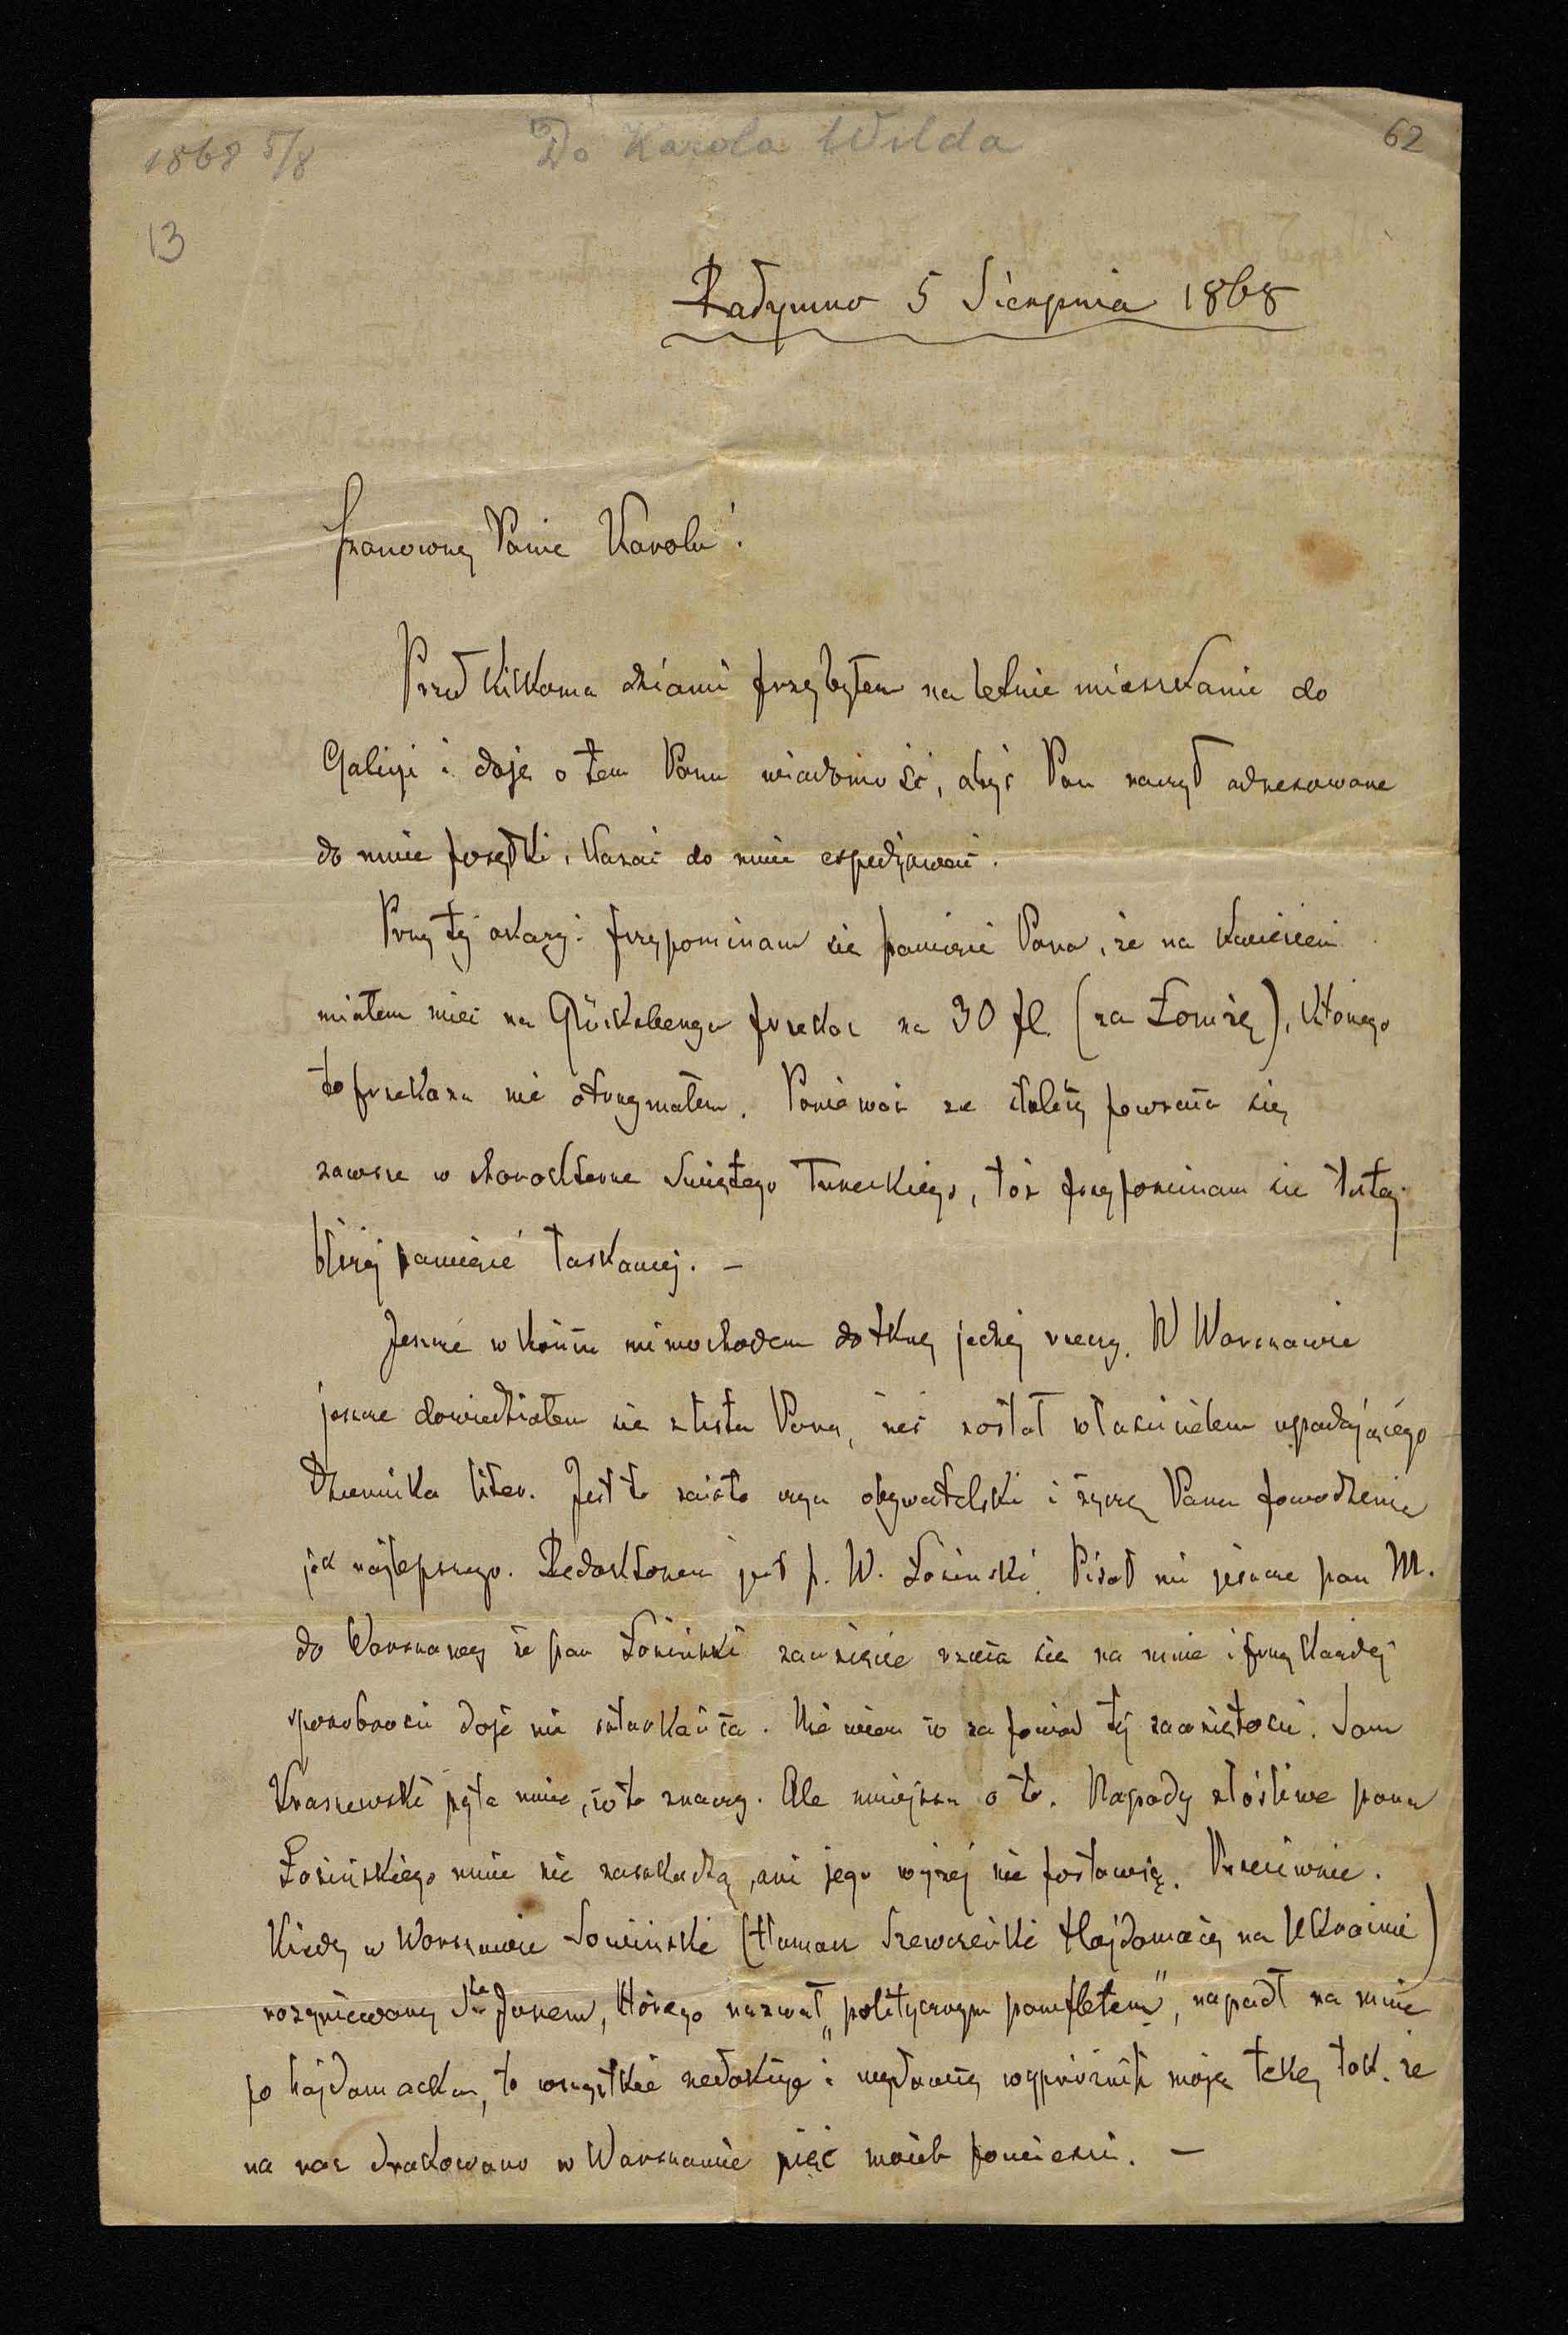 1868 5/8
Do Karola Wilda
62
13
Radymno 5 Sierpnia 1868
Szanowny Panie Karolu!
Przed kilkoma dniami przybyłem na letnie mieszkanie do
Galicyi i daję o tem Panu wiadomość, abyś Pan raczył adresowane
do mnie posyłki, kazać do mnie espedjować.
Przy tej okazyi przypominam się pamięci Pana, że na kwiecień
miałem mieć na Glücksberga przekaz na 30 fl. (za Łomżę), którego
to przekazu nie otrzymałem. Ponieważ ze stolicy powraca się
zawsze w charakterze Świętego Tureckiego, toż przypominam się tutaj
bliżej pamięci łaskawej. —
Jeszcze w końcu mimochodem dotknę jednej rzeczy. W Warszawie
jeszcze dowiedziałem się z listu Pana, żeś został właścicielem upadającego
Dziennika liter. Jest to zaiste czyn obywatelski i życzę Panu powodzenia
jak najlepszego. Redaktorem jest p. W. Łoziński. Pisał mi jeszcze pan M.
do Warszawy że pan Łoziński zawzięcie rzuca się na mnie i przy każdej
sposobności daje mi szturkańca. Nie wiem co za powód tej zawziętości. Sam
Kraszewski pyta mnie, co to znaczy. Ale mniejsza o to. Napady złośliwe pana
Łozińskiego mnie nie zaszkodzą, ani jego wyżej nie postawią. Przeciwnie.
Kiedy w Warszawie Sowiński (tłumacz Szewczeńki Hajdamacy na Ukrainie)
rozgniewany Sta Jurem, którego nazwał „politycznym pamfletem", napadł na mnie
po hajdamacku, to wszystkie redakcye i wydawcy wypróżnili moją tekę tak, że
na raz drukowano w Warszawie pięć moich powieści. —